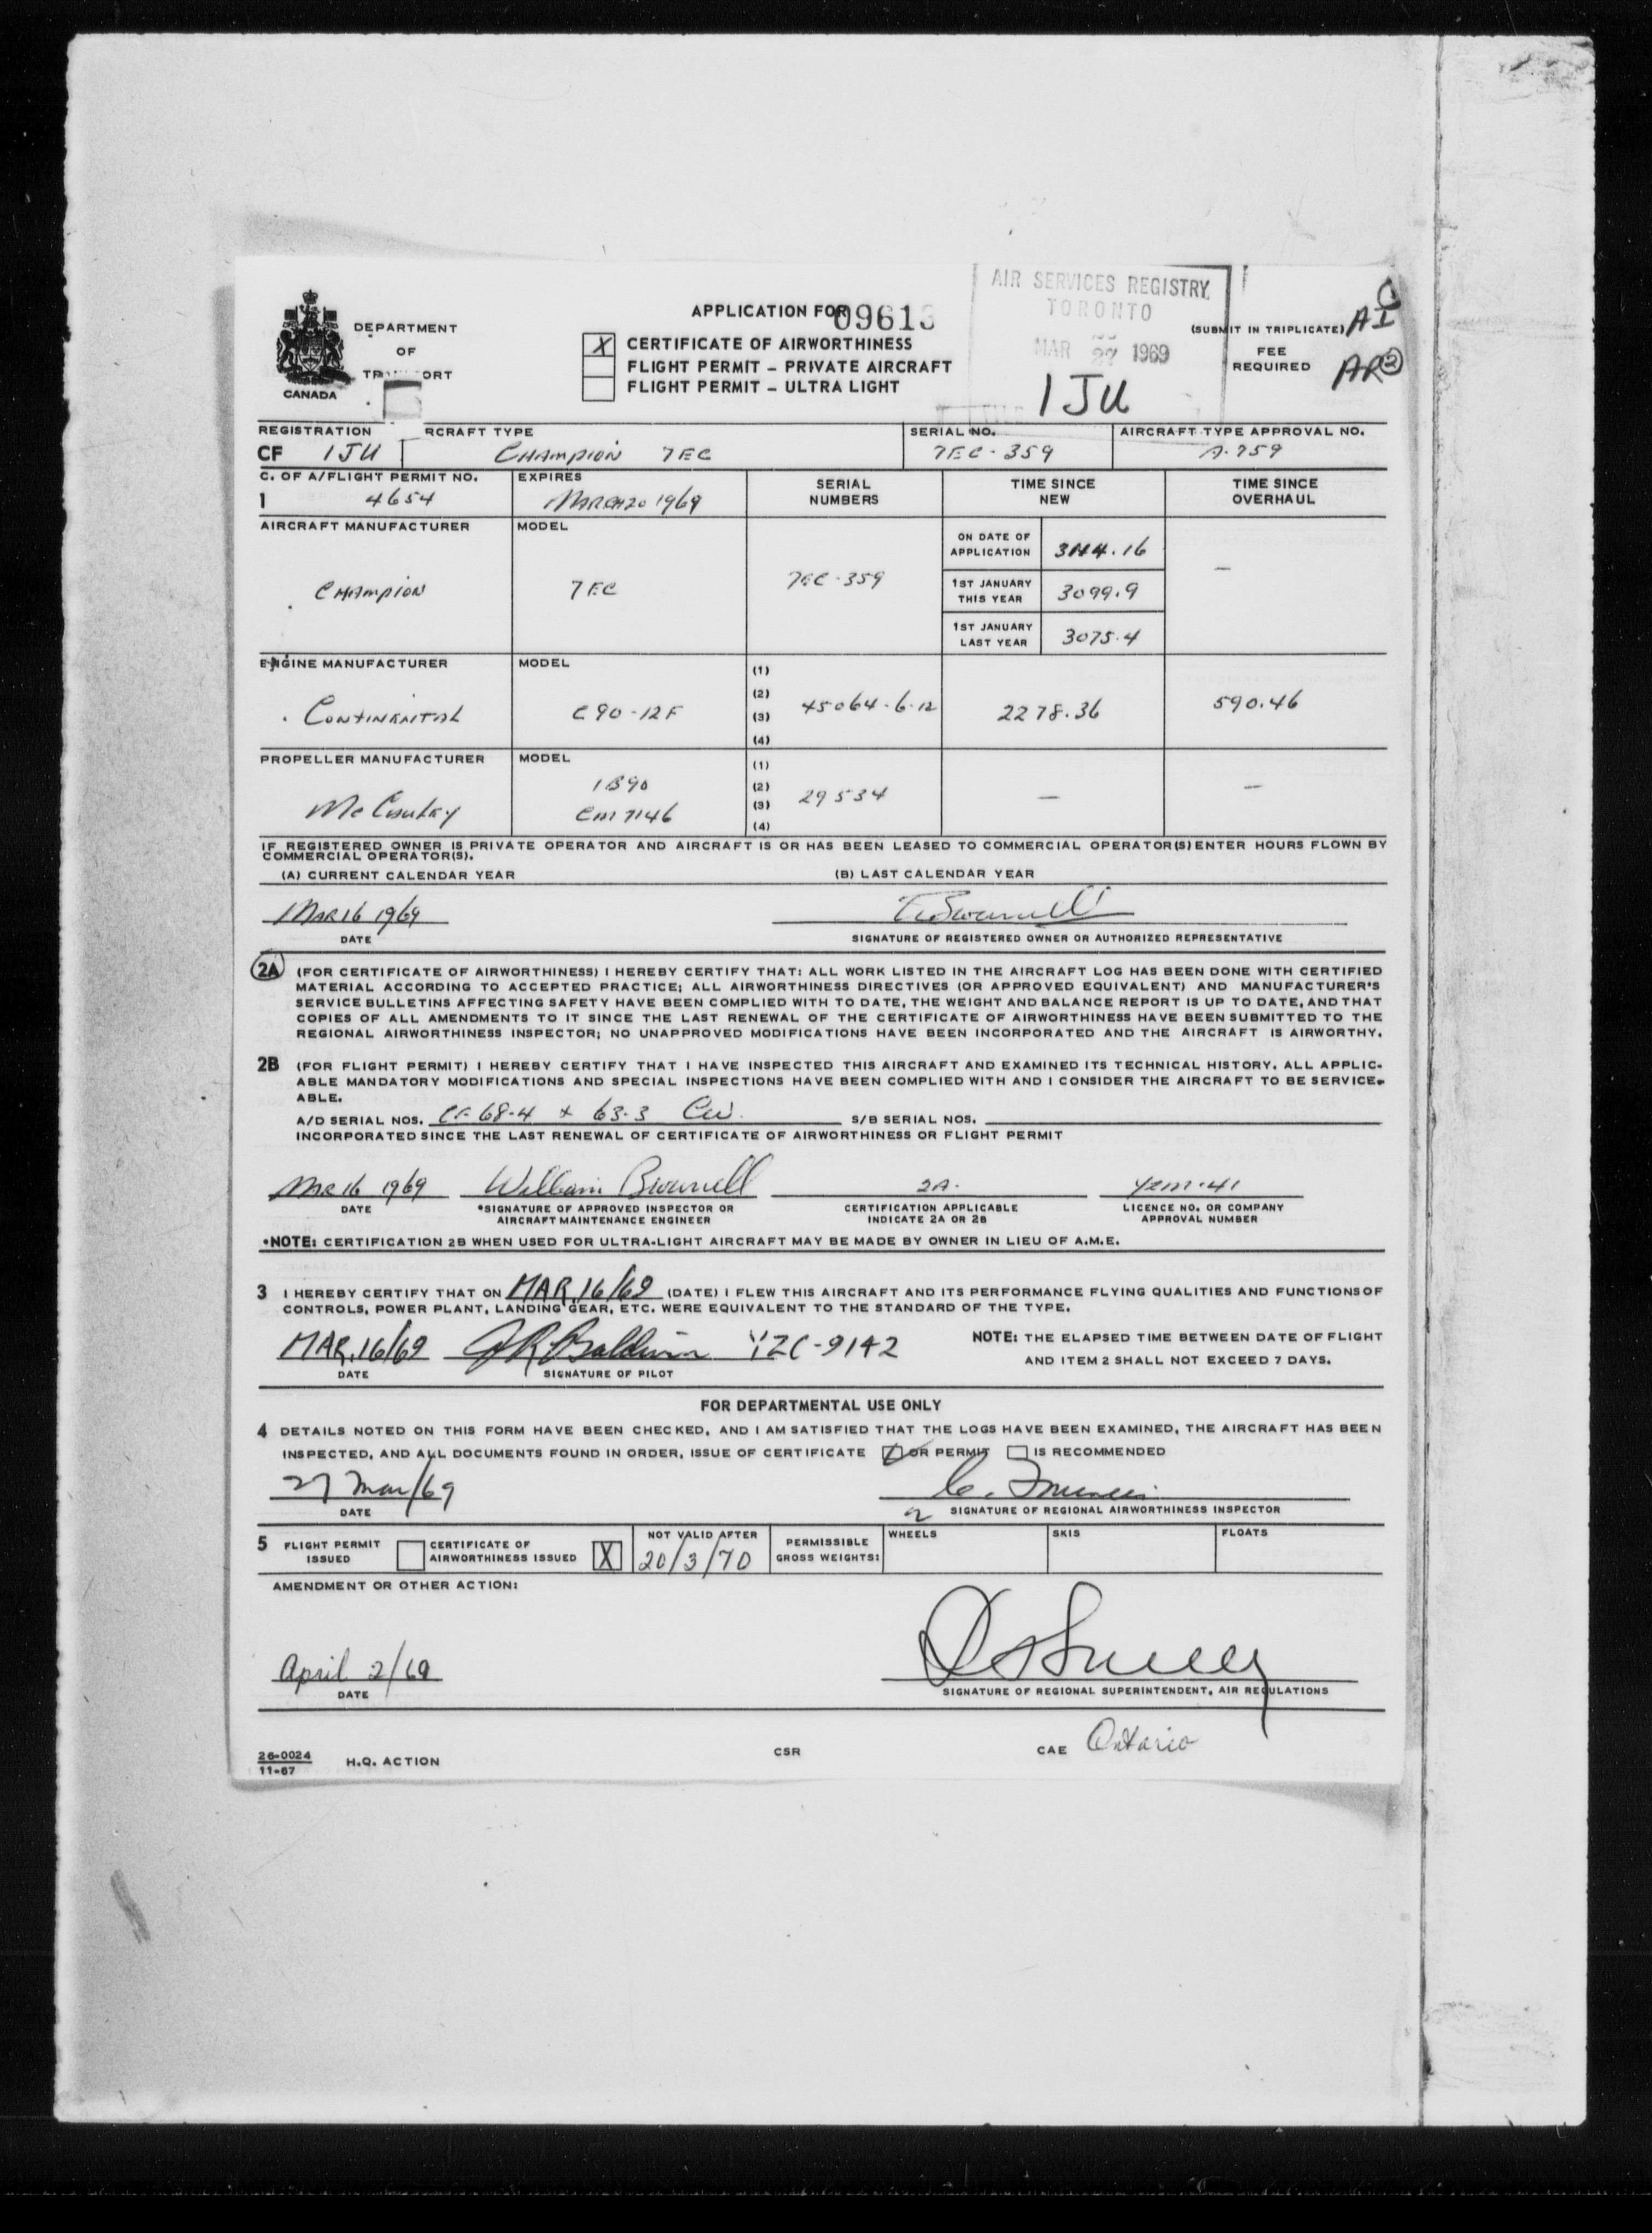 AIR SERVICES REGISTRY
TORONTO
MAR 27 1969
1JU
DEPARTMENT
OF
CANADA
APPLICATION FOR
X CERTIFICATE OF AIRWORTHINESS
FLIGHT PERMIT – PRIVATE AIRCRAFT
FLIGHT PERMIT – ULTRA LIGHT
(SUBMIT IN TRIPLICATE) AI
FEE
REQUIRED AR 2
REGISTRATION RCRAFT TYPE SERIAL NO. AIRCRAFT TYPE APPROVAL NO.
CF 1JU CHAMPION 7EC 7EC-359 A-759
C. OF A/FLIGHT PERMIT NO. EXPIRES SERIAL NUMBERS TIME SINCE NEW TIME SINCE OVERHAUL
1 4654 MARCH 20 1969
AIRCRAFT MANUFACTURER MODEL
CHAMPION 7EC 7EC-359
ON DATE OF APPLICATION
1ST JANUARY THIS YEAR 3099.9
1ST JANUARY LAST YEAR 3075.4
ENGINE MANUFACTURER MODEL
(1)
(2)
(3)
(4)
CONTINENTAL C90-12F 45064-6-12 2278.36 590.46
PROPELLER MANUFACTURER MODEL
(1)
(2)
(3)
(4)
McCauley 1B90 CM7146 29534 — —
IF REGISTERED OWNER IS PRIVATE OPERATOR AND AIRCRAFT IS OR HAS BEEN LEASED TO COMMERCIAL OPERATOR(S) ENTER HOURS FLOWN BY
COMMERCIAL OPERATOR(S).
(A) CURRENT CALENDAR YEAR (B) LAST CALENDAR YEAR
MAR 16 1969
DATE SIGNATURE OF REGISTERED OWNER OR AUTHORIZED REPRESENTATIVE
2A (FOR CERTIFICATE OF AIRWORTHINESS) I HEREBY CERTIFY THAT: ALL WORK LISTED IN THE AIRCRAFT LOG HAS BEEN DONE WITH CERTIFIED
MATERIAL ACCORDING TO ACCEPTED PRACTICE; ALL AIRWORTHINESS DIRECTIVES (OR APPROVED EQUIVALENT) AND MANUFACTURER'S
SERVICE BULLETINS AFFECTING SAFETY HAVE BEEN COMPLIED WITH TO DATE, THE WEIGHT AND BALANCE REPORT IS UP TO DATE, AND THAT
COPIES OF ALL AMENDMENTS TO IT SINCE THE LAST RENEWAL OF THE CERTIFICATE OF AIRWORTHINESS HAVE BEEN SUBMITTED TO THE
REGIONAL AIRWORTHINESS INSPECTOR; NO UNAPPROVED MODIFICATIONS HAVE BEEN INCORPORATED AND THE AIRCRAFT IS AIRWORTHY.
2B (FOR FLIGHT PERMIT) I HEREBY CERTIFY THAT I HAVE INSPECTED THIS AIRCRAFT AND EXAMINED ITS TECHNICAL HISTORY. ALL APPLIC-
ABLE MANDATORY MODIFICATIONS AND SPECIAL INSPECTIONS HAVE BEEN COMPLIED WITH AND I CONSIDER THE AIRCRAFT TO BE SERVICE-
ABLE.
A/D SERIAL NOS. CF 68-4 + 63-3 CW. S/B SERIAL NOS.
INCORPORATED SINCE THE LAST RENEWAL OF CERTIFICATE OF AIRWORTHINESS OR FLIGHT PERMIT
MAR 16 1969 William Brownell 2A. YZM-41
DATE *SIGNATURE OF APPROVED INSPECTOR OR AIRCRAFT MAINTENANCE ENGINEER CERTIFICATION APPLICABLE INDICATE 2A OR 2B LICENCE NO. OR COMPANY APPROVAL NUMBER
*NOTE: CERTIFICATION 2B WHEN USED FOR ULTRA-LIGHT AIRCRAFT MAY BE MADE BY OWNER IN LIEU OF A.M.E.
3 I HEREBY CERTIFY THAT ON MAR. 16/69 (DATE) I FLEW THIS AIRCRAFT AND ITS PERFORMANCE FLYING QUALITIES AND FUNCTIONS OF
CONTROLS, POWER PLANT, LANDING GEAR, ETC. WERE EQUIVALENT TO THE STANDARD OF THE TYPE.
MAR. 16/69 JR Baldwin YZC-9142 NOTE: THE ELAPSED TIME BETWEEN DATE OF FLIGHT
AND ITEM 2 SHALL NOT EXCEED 7 DAYS.
DATE SIGNATURE OF PILOT
FOR DEPARTMENTAL USE ONLY
4 DETAILS NOTED ON THIS FORM HAVE BEEN CHECKED, AND I AM SATISFIED THAT THE LOGS HAVE BEEN EXAMINED, THE AIRCRAFT HAS BEEN
INSPECTED, AND ALL DOCUMENTS FOUND IN ORDER, ISSUE OF CERTIFICATE OR PERMIT IS RECOMMENDED
27 Mar/69
DATE SIGNATURE OF REGIONAL AIRWORTHINESS INSPECTOR
5 FLIGHT PERMIT ISSUED CERTIFICATE OF AIRWORTHINESS ISSUED X NOT VALID AFTER 20/3/70 PERMISSIBLE GROSS WEIGHTS: WHEELS SKIS FLOATS
AMENDMENT OR OTHER ACTION:
April 2/69
DATE SIGNATURE OF REGIONAL SUPERINTENDENT, AIR REGULATIONS
26-0024
11-67
H.Q. ACTION CSR CAE Ontario